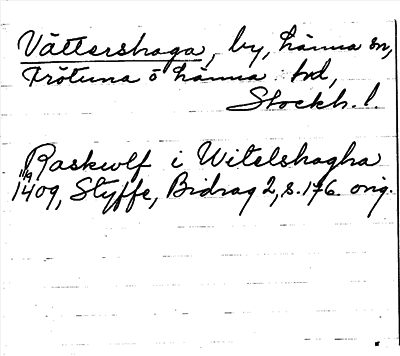 Vättershaga, by, Länna sn,
Frötuna o Länna hd,
Stockh. l.
Raskwlf i Witelshagha
11/9 1409, Styffe, Bidrag 2, s. 176. orig.